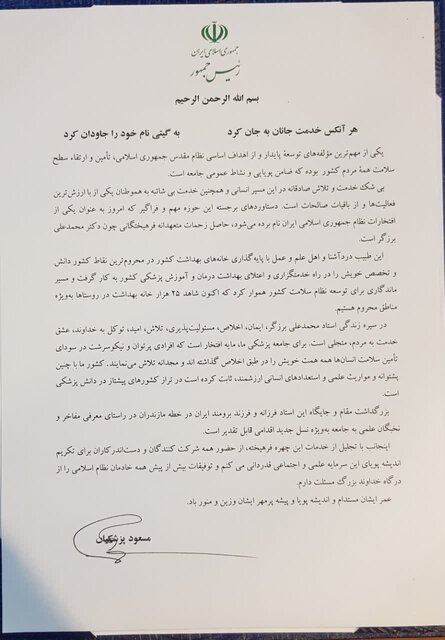 جمهوری اسلامی ایران
رئیس جمهور
بسم الله الرحمن الرحیم
هر آنکس خدمت جانان به جان کرد به گیتی نام خود را جاودان کرد
یکی از مهم‌ترین مؤلفه‌های توسعۀ پایدار و از اهداف اساسی نظام مقدس جمهوری اسلامی، تأمین و ارتقاء سطح
سلامت همۀ مردم کشور بوده که ضامن پویایی و نشاط عمومی جامعه است.
بی شک خدمت و تلاش صادقانه در این مسیر انسانی و همچنین خدمت بی شائبه به هموطنان یکی از با ارزش‌ترین
فعالیت‌ها و از باقیات صالحات است. دستاوردهای برجسته این حوزه مهم و فراگیر که امروز به عنوان یکی از
افتخارات نظام جمهوری اسلامی ایران نام برده می‌شود، حاصل زحمات متعهدانه فرهیختگانی چون دکتر محمدعلی
برزگر است.
این طبیب دردآشنا و اهل علم و عمل با پایه‌گذاری خانه‌های بهداشت کشور در محروم‌ترین نقاط کشور دانش
و تخصص خویش را در راه خدمتگزاری و اعتلای بهداشت درمان و آموزش پزشکی کشور به کار گرفت و مسیر
ماندگاری برای توسعه نظام سلامت کشور هموار کرد که اکنون شاهد ۲۵ هزار خانه بهداشت در روستاها به‌ویژه
مناطق محروم هستیم.
در سیره زندگی استاد محمدعلی برزگر، ایمان، اخلاص، مسئولیت‌پذیری، تلاش، امید، توکل به خداوند، عشق
خدمت به مردم، متجلی است. برای جامعه پزشکی ما، مایه افتخار است که افرادی پرتوان و نیکوسرشت در سودای
تأمین سلامت انسان‌ها همه همت خویش را در طبق اخلاص گذاشته اند و مجدانه تلاش می‌نمایند. کشور ما با چنین
پشتوانه و مواریث علمی و استعدادهای انسانی ارزشمند، ثابت کرده است در تراز کشورهای پیشتاز در دانش پزشکی
است.
بزرگداشت مقام و جایگاه این استاد فرزانه و فرزند برومند ایران در خطه مازندران در راستای معرفی مفاخر و
نخبگان علمی به جامعه به‌ویژه نسل جدید اقدامی قابل تقدیر است.
اینجانب با تجلیل از خدمات این چهره فرهیخته، از حضور همه شرکت کنندگان و دست‌اندرکاران برای تکریم
اندیشه پویای این سرمایه علمی و اجتماعی قدردانی می کنم و توفیقات بیش از پیش همه خادمان نظام اسلامی را از
درگاه خداوند بزرگ مسئلت دارم.
عمر ایشان مستدام و اندیشه پویا و پیشه پرمهر ایشان وزین و منور باد.
مسعود پزشکیان